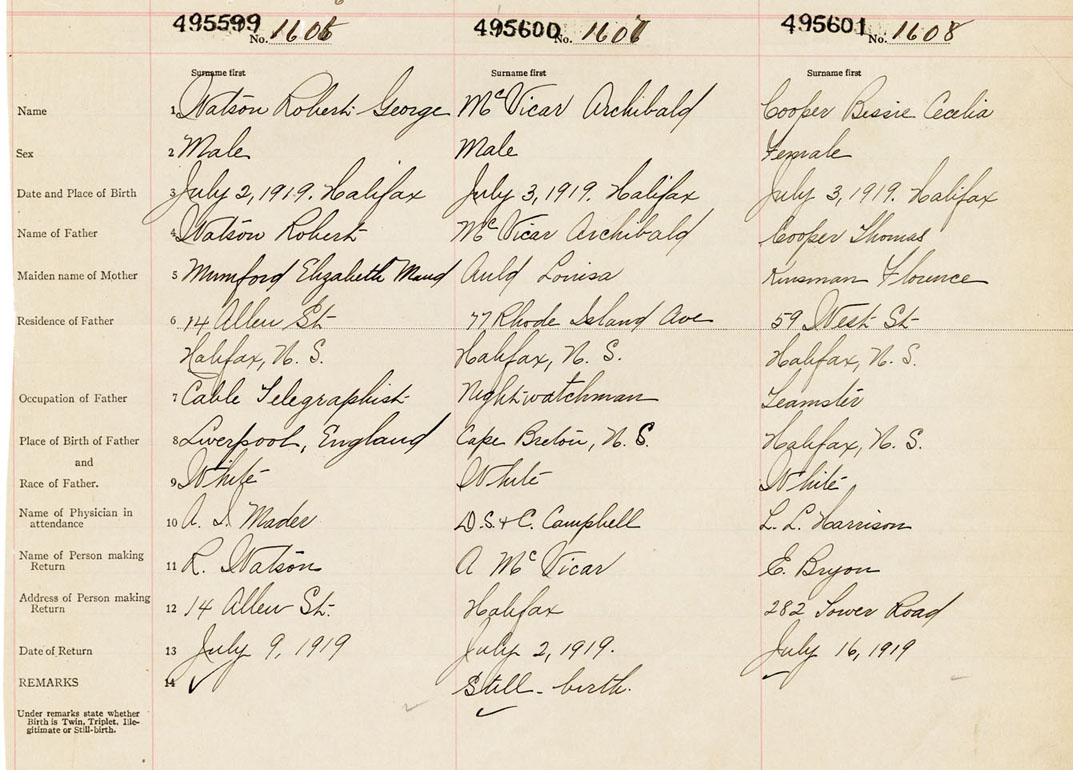 495599 No. 1606 495600 No. 1607 495601 No. 1608
Surname first Surname first Surname first
Name 1 Watson Robert George McVicar Archibald Cooper Bessie Cecelia
Sex 2 Male Male Female
Date and Place of Birth 3 July 2, 1919. Halifax July 3, 1919. Halifax July 3, 1919. Halifax
Name of Father 4 Watson Robert McVicar Archibald Cooper Thomas
Maiden name of Mother 5 Mumford Elizabeth Maud Auld Louisa Kinsman Florence
Residence of Father 6 14 Allen St 77 Rhode Island Ave 59 West St
Halifax, N. S. Halifax, N. S. Halifax, N. S.
Occupation of Father 7 Cable Telegraphist Nightwatchman Teamster
Place of Birth of Father 8 Liverpool, England Cape Breton, N. S. Halifax, N. S.
and
Race of Father. 9 White White White
Name of Physician in
attendance 10 A. I. Mader D. S. & C. Campbell L. L. Harrison
Name of Person making
Return 11 R. Watson A McVicar E. Bryon
Address of Person making
Return 12 14 Allen St. Halifax 282 Tower Road
Date of Return 13 July 9, 1919 July 2, 1919. July 16, 1919
REMARKS 14 ✓ Still-birth. ✓ ✓
Under remarks state whether
Birth is Twin, Triplet, Ille-
gitimate or Still-birth.